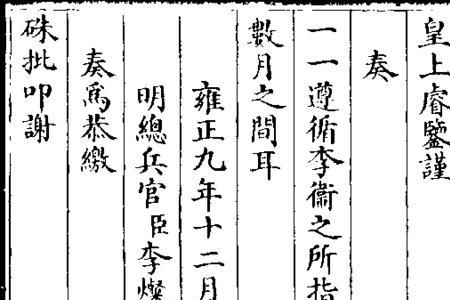 皇上睿鑒謹
奏
一一遵循李衛之所指
數月之間耳
雍正九年十二月
明總兵官臣李燦
奏為恭繳
硃批叩謝